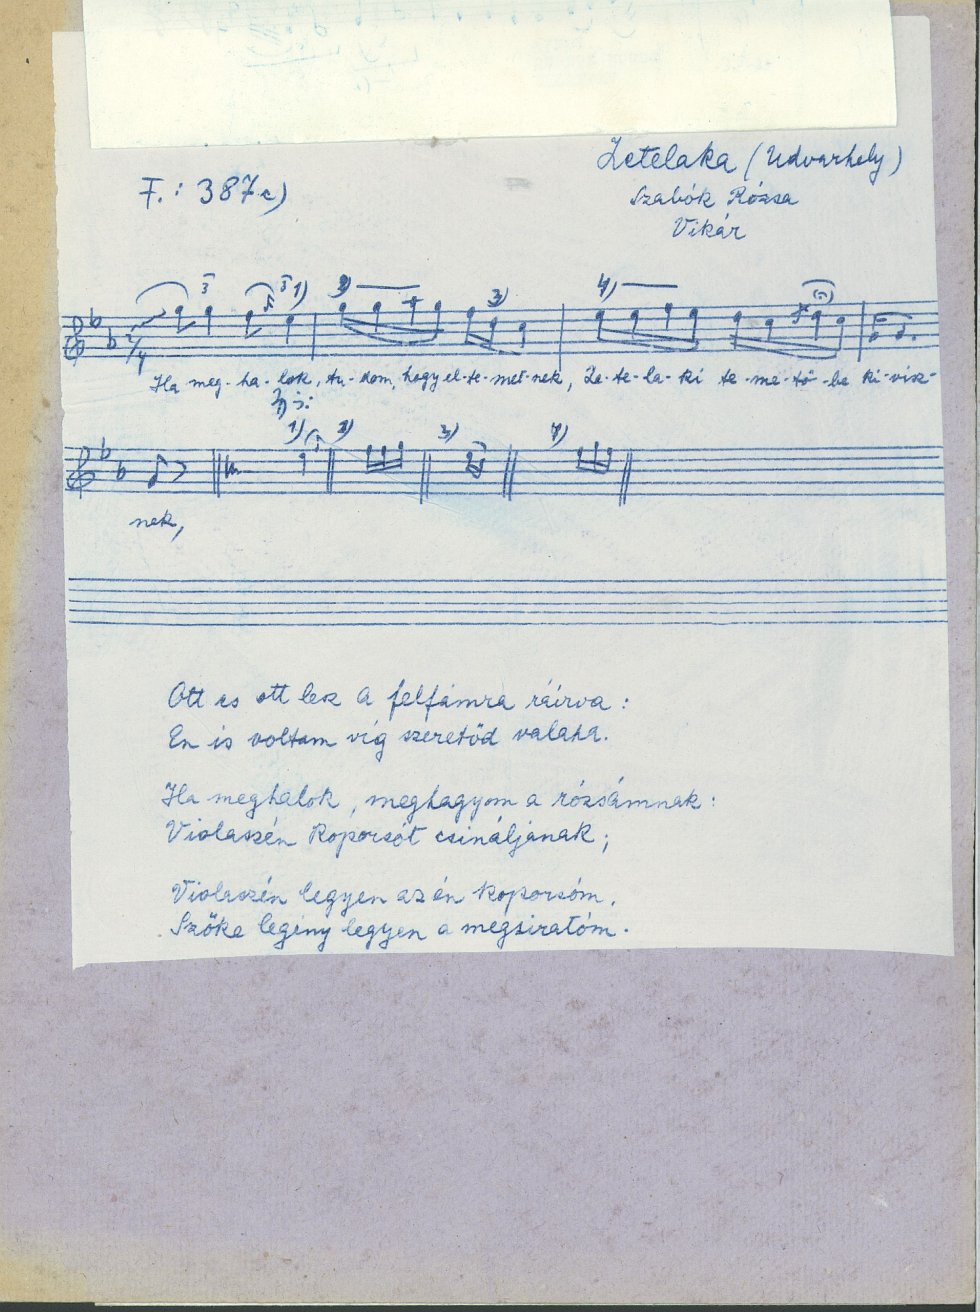 F.: 387c)
Zetelaka (Udvarhely)
Szabók Rózsa
Vikár
3 3 1) 2) 3) 4)
Ha meg-ha-lok, tu-dom, hogy el-te-met-nek, Ze-te-la-ki te-me-tő-be ki-visz-
1) 2) 3) 4)
nek,
Ott es ott lesz a felfámra ráírva:
Én is voltam víg szeretőd valaha.
Ha meghalok, meghagyom a rózsámnak:
Violaszén koporsót csináljanak;
Violaszén legyen az én koporsóm,
Szőke legény legyen a megsiratóm.